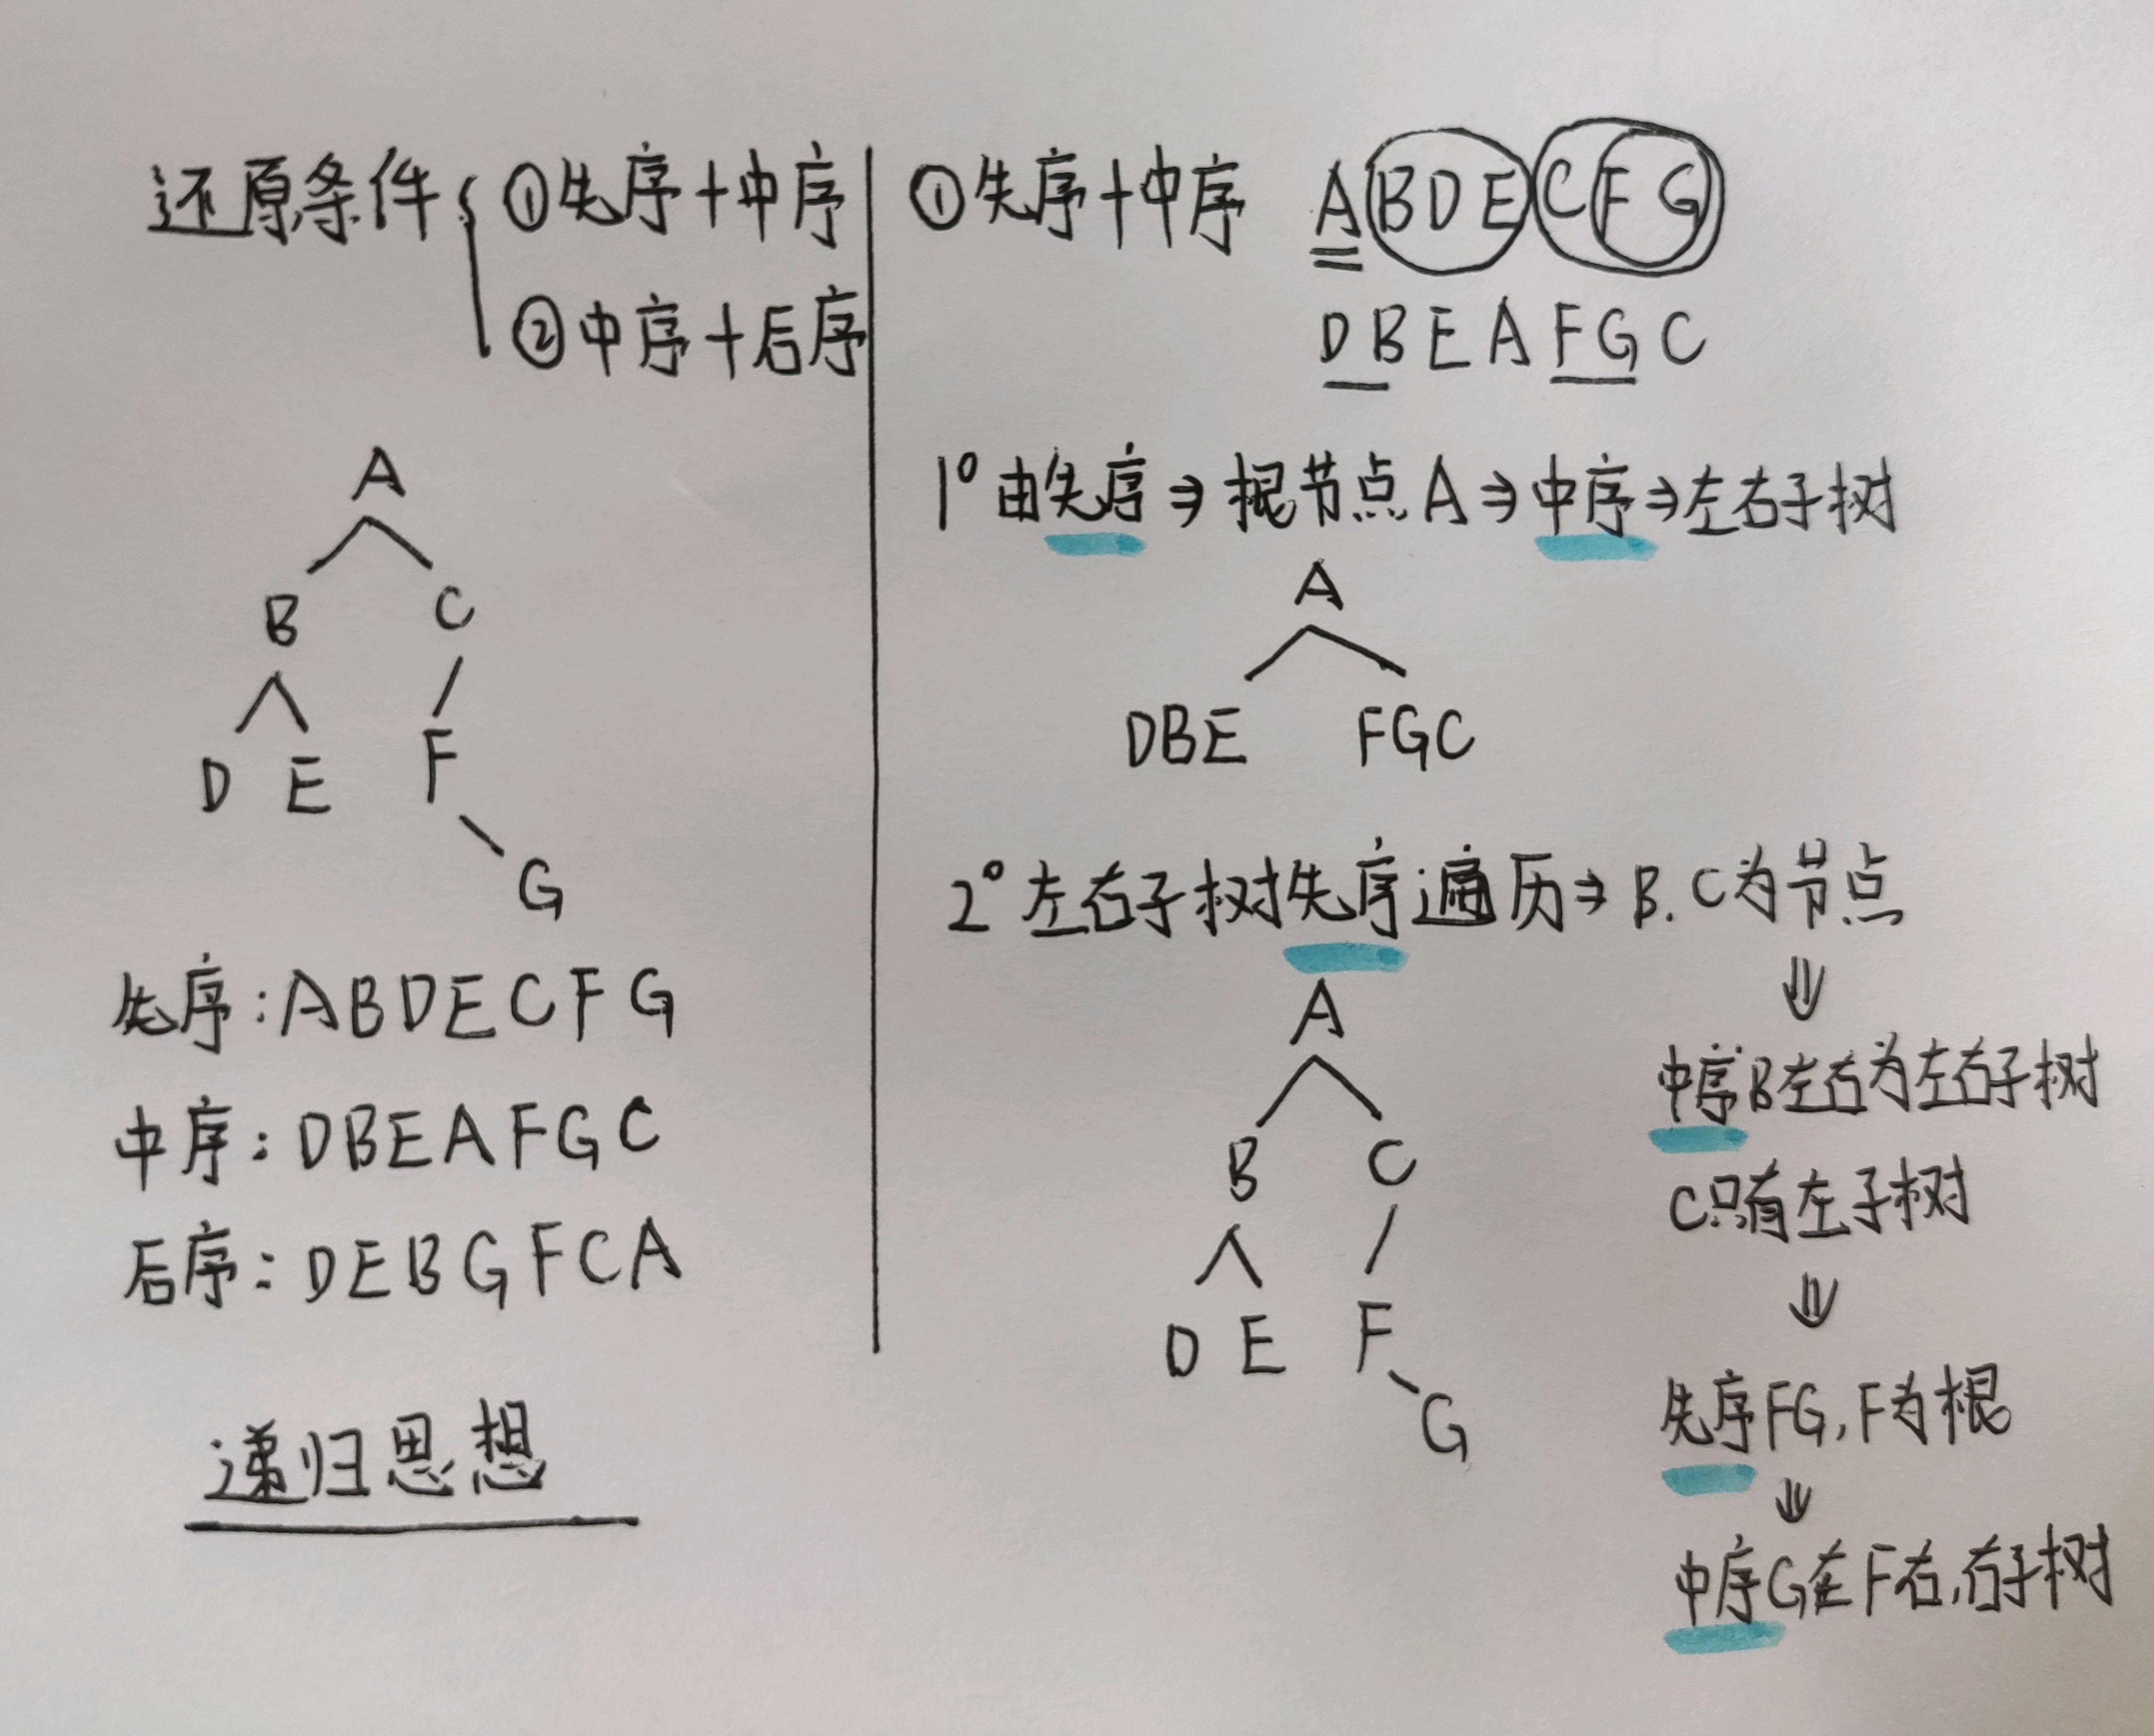 还原条件 { ①先序+中序
②中序+后序
A
B C
D E F
G
先序:ABDECFG
中序:DBEAFGC
后序:DEBGFCA
递归思想
①先序+中序 ABDECFG
DBEAFGC
1° 由先序⇒根节点A⇒中序⇒左右子树
A
DBE FGC
2° 左右子树先序遍历⇒B.C为节点
⇓
中序B左右为左右子树
C只有左子树
⇓
先序FG,F为根
⇓
中序G在F右,右子树
A
B C
D E F
G